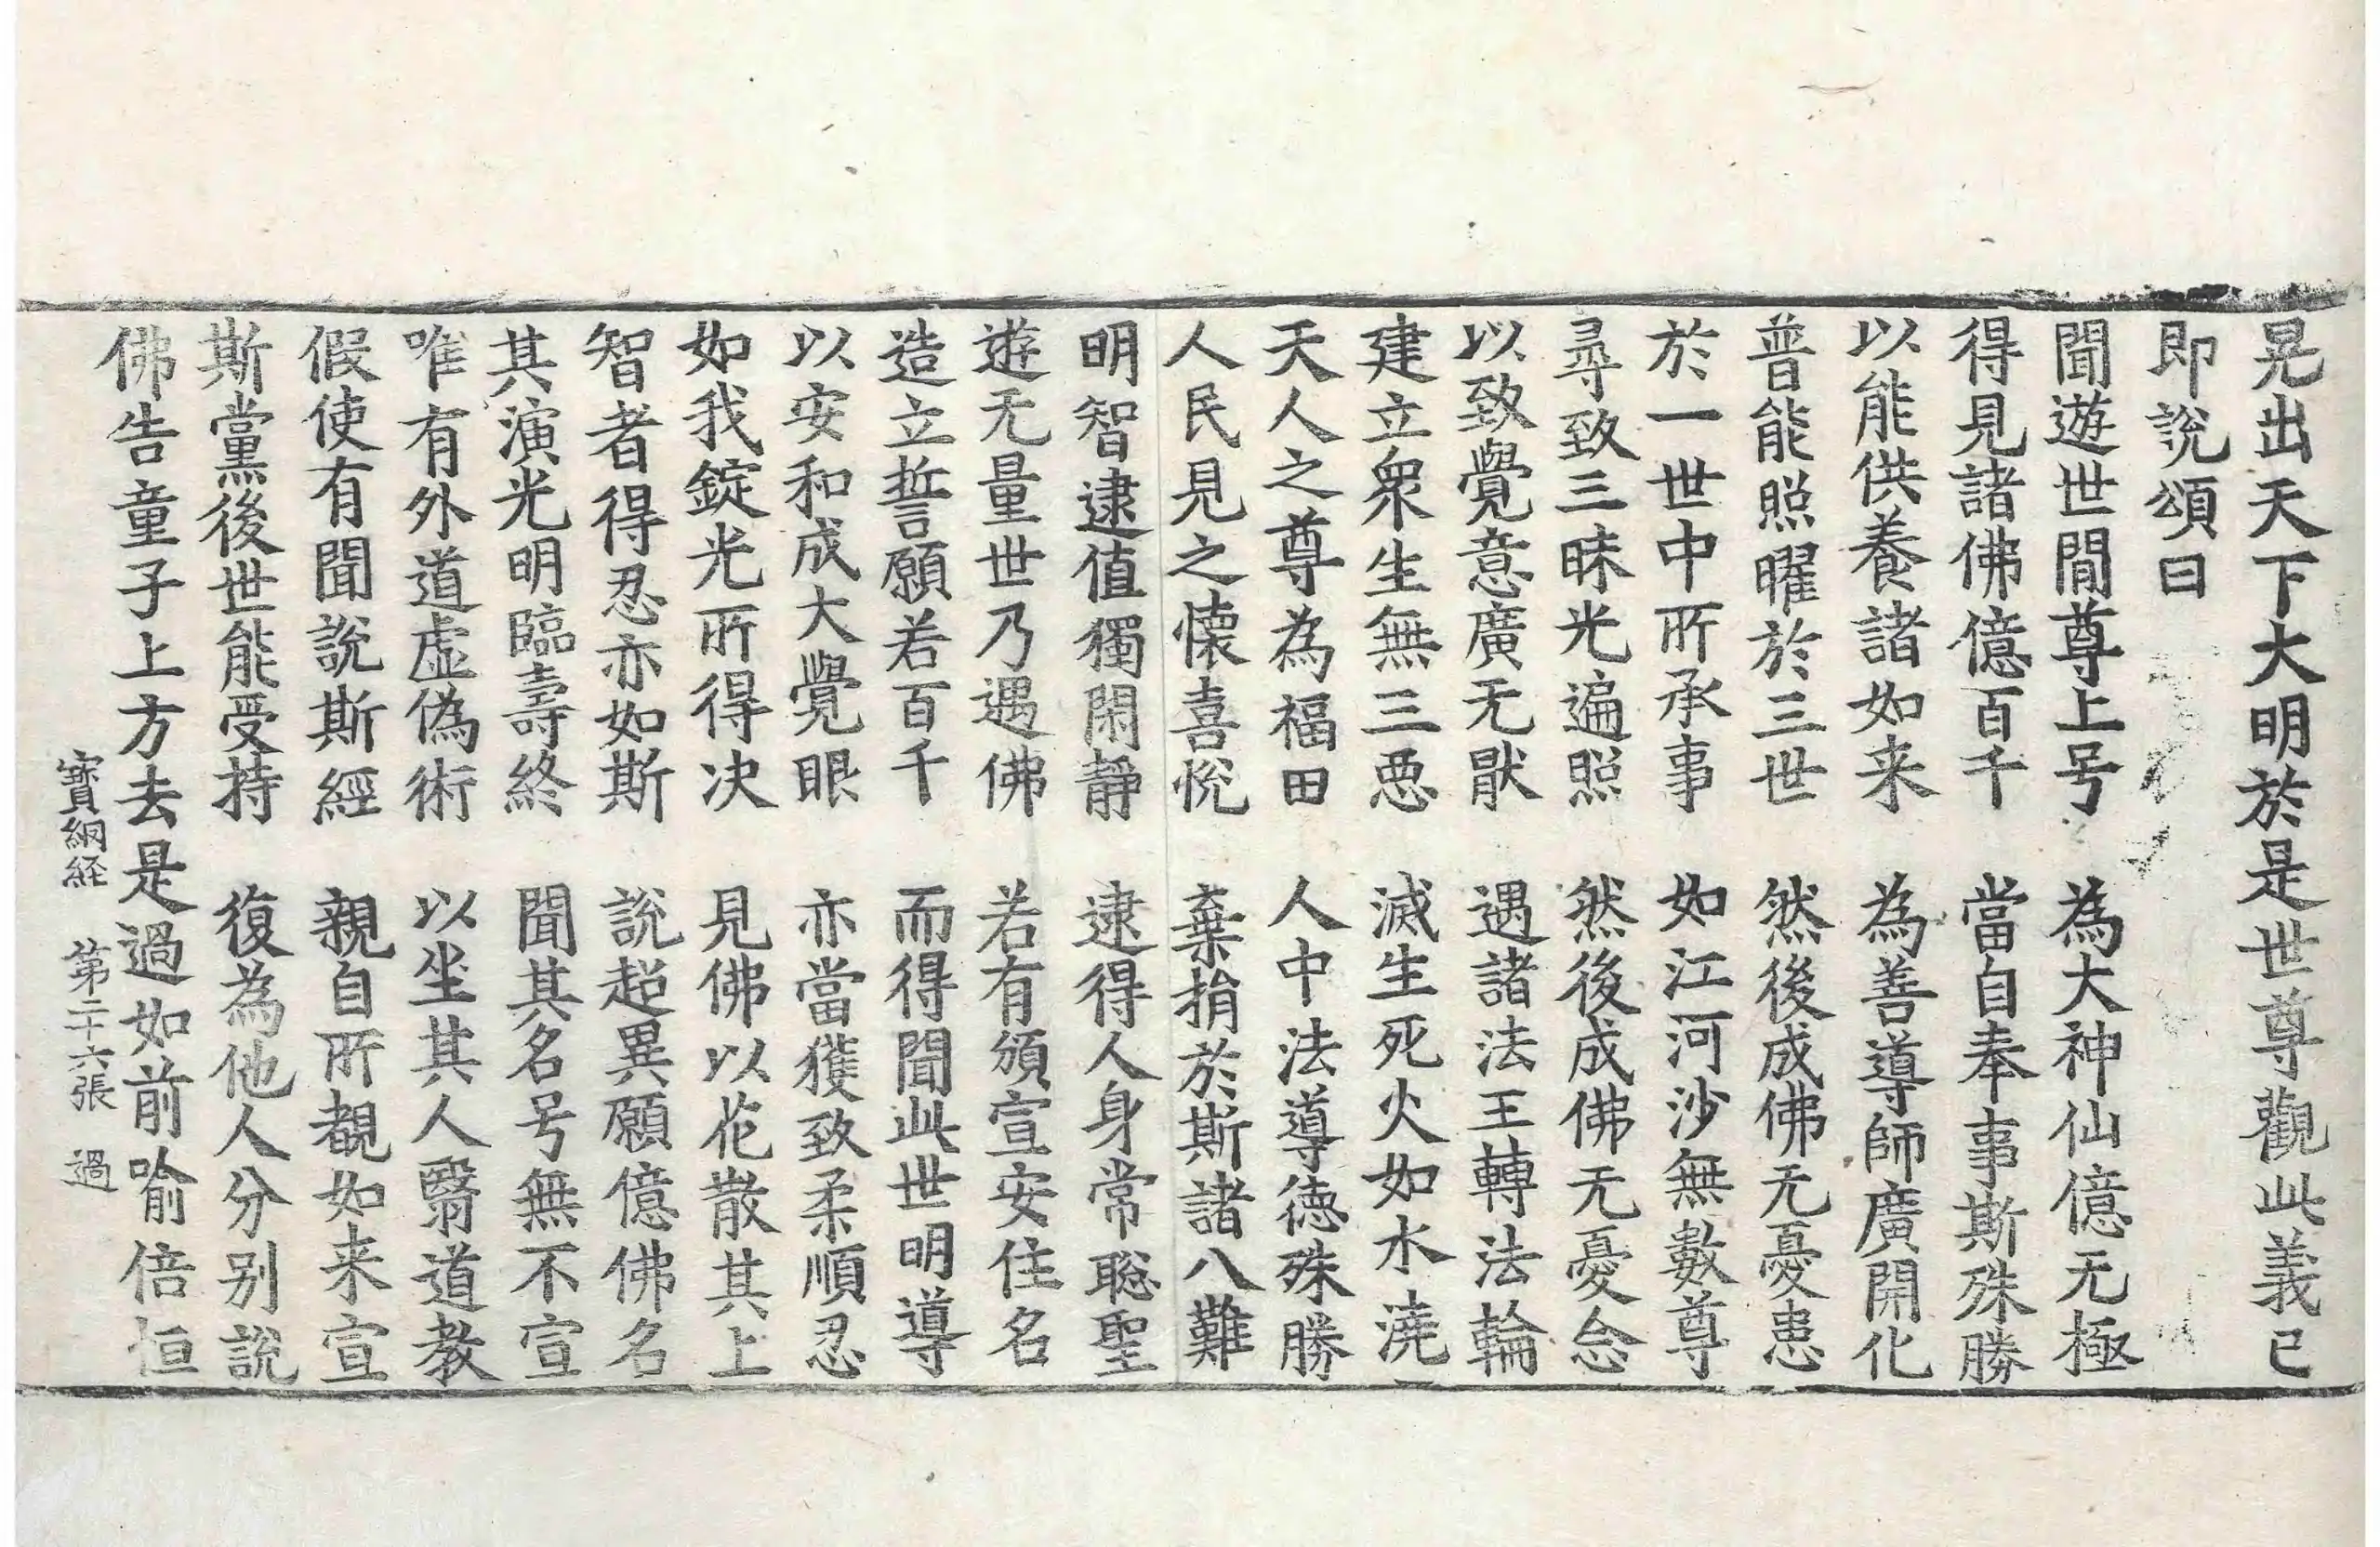 晃出天下大明於是世尊觀此義已
即說頌曰
聞遊世間尊上号　為大神仙億无極
得見諸佛億百千　當自奉事斯殊勝
以能供養諸如来　為善導師廣開化
普能照曜於三世　然後成佛无憂患
於一世中所承事　如江河沙無數尊
尋致三昧光遍照　然後成佛无憂念
以致覺意廣无猒　遇諸法王轉法輪
建立衆生無三惡　滅生死火如水澆
天人之尊為福田　人中法導德殊勝
人民見之懷喜悅　棄捐於斯諸八難
明智逮值獨閑靜　逮得人身常聡聖
遊无量世乃遇佛　若有頒宣安住名
造立誓願若百千　而得聞此世明導
以安和成大覺眼　亦當獲致柔順忍
如我錠光所得决　見佛以花散其上
智者得忍亦如斯　說超異願億佛名
其演光明臨壽終　聞其名号無不宣
唯有外道虛偽術　以坐其人翳道教
假使有聞說斯經　親自所覩如来宣
斯黨後世能受持　復為他人分别說
佛告童子上方去是過如前喻倍恒
寶網経　第二十六張　過